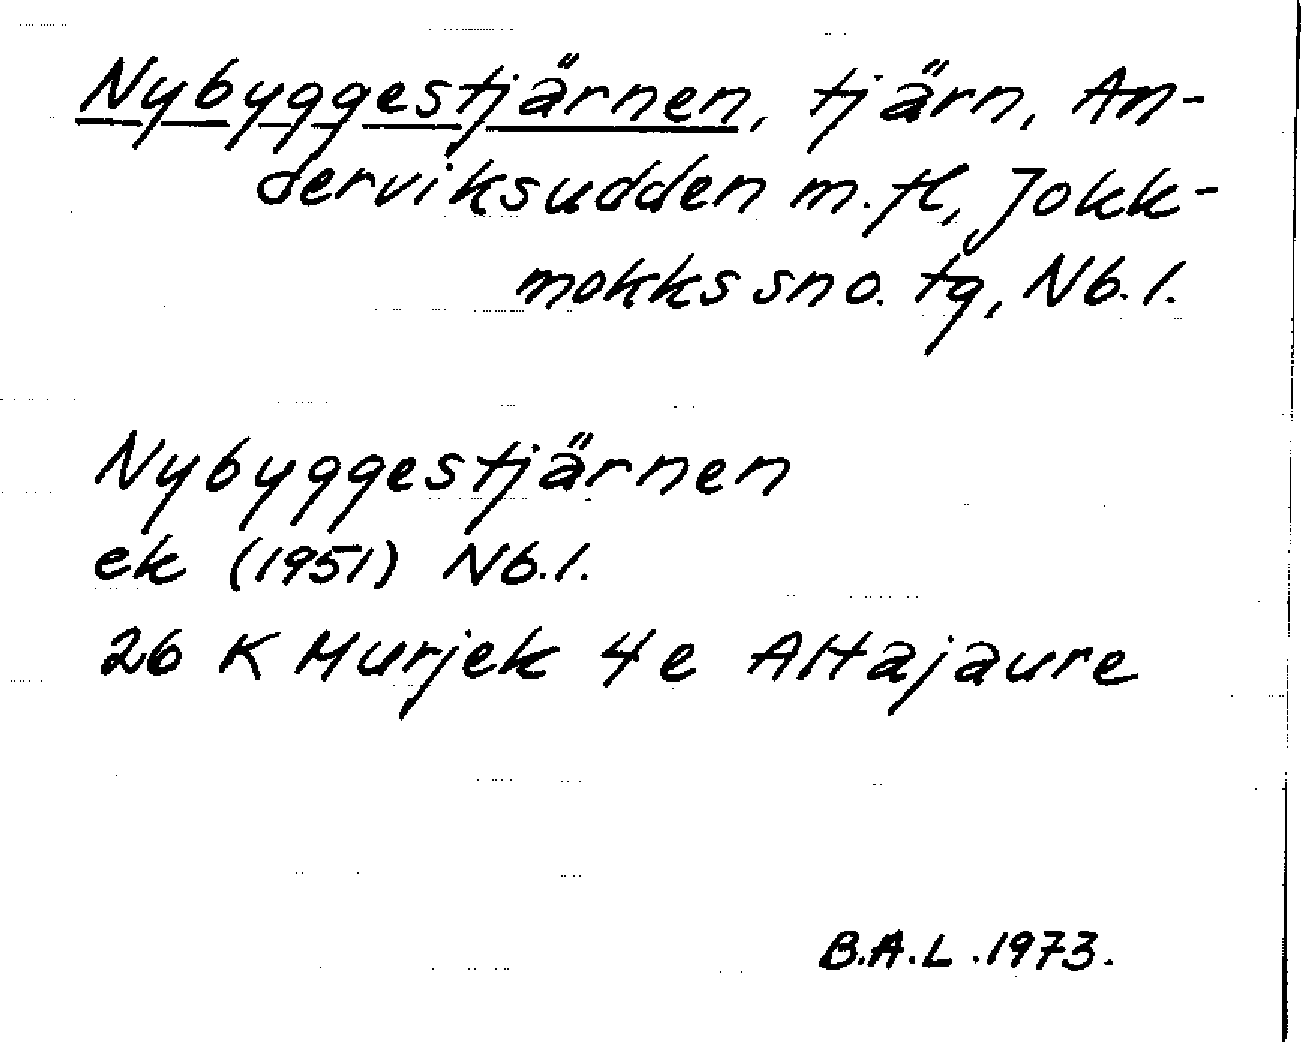 Nybyggestjärnen, tjärn, An-
derviksudden m.fl, Jokk-
mokks sn o. tg, Nb.l.
Nybyggestjärnen
ek (1951) Nb.l.
26 K Murjek 4e Altajaure
B.A.L. 1973.